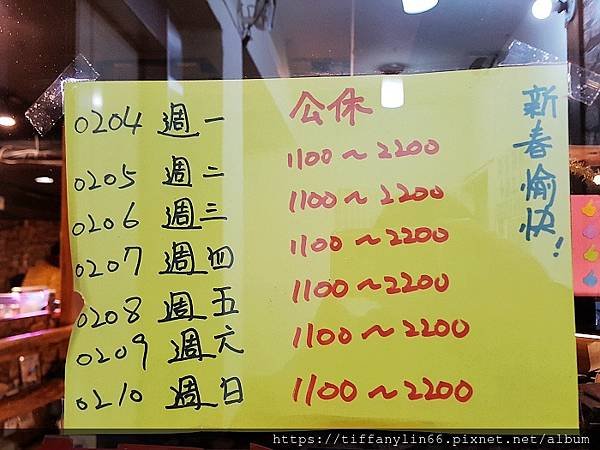 0204 週一 公休
0205 週二 1100~2200
0206 週三 1100~2200
0207 週四 1100~2200
0208 週五 1100~2200
0209 週六 1100~2200
0210 週日 1100~2200
新春愉快!
https://tiffanylin66.pixnet.net/album